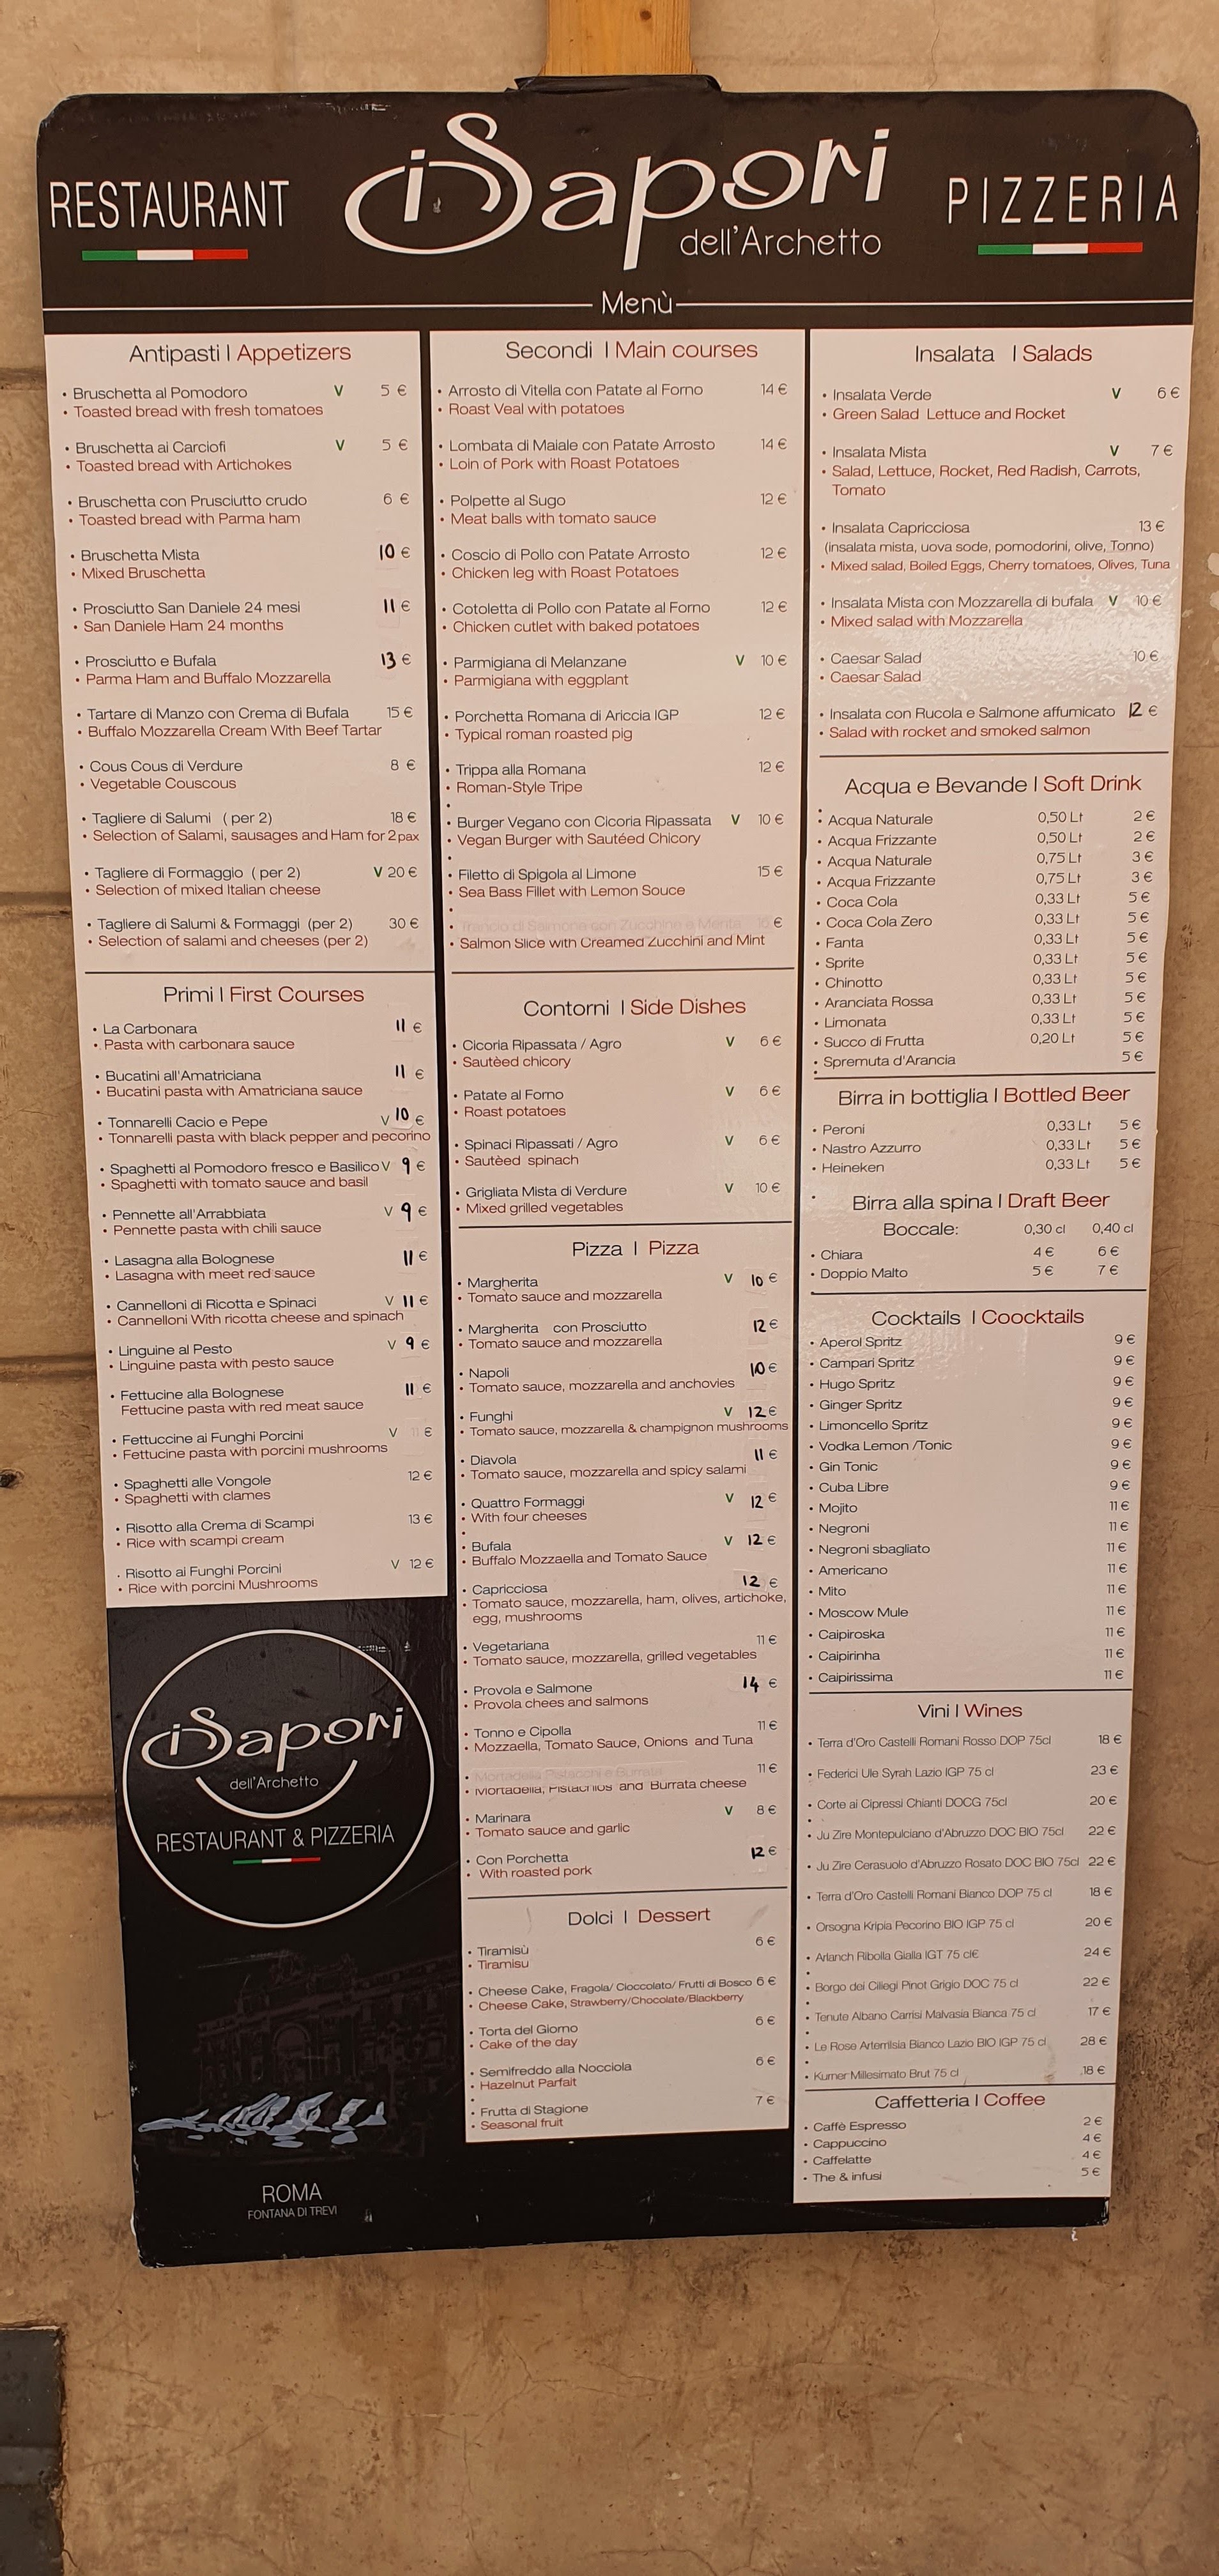 RESTAURANT
iSapori
dell'Archetto
PIZZERIA
Menù
Antipasti | Appetizers
• Bruschetta al Pomodoro V 5 €
• Toasted bread with fresh tomatoes
• Bruschetta ai Carciofi V 5 €
• Toasted bread with Artichokes
• Bruschetta con Prusciutto crudo 6 €
• Toasted bread with Parma ham
• Bruschetta Mista 10 €
• Mixed Bruschetta
• Prosciutto San Daniele 24 mesi 11 €
• San Daniele Ham 24 months
• Prosciutto e Bufala 13 €
• Parma Ham and Buffalo Mozzarella
• Tartare di Manzo con Crema di Bufala 15 €
• Buffalo Mozzarella Cream With Beef Tartar
• Cous Cous di Verdure 8 €
• Vegetable Couscous
• Tagliere di Salumi ( per 2) 18 €
• Selection of Salami, sausages and Ham for 2 pax
• Tagliere di Formaggio ( per 2) V 20 €
• Selection of mixed Italian cheese
• Tagliere di Salumi & Formaggi (per 2) 30 €
• Selection of salami and cheeses (per 2)
Primi | First Courses
• La Carbonara 11 €
• Pasta with carbonara sauce
• Bucatini all'Amatriciana 11 €
• Bucatini pasta with Amatriciana sauce
• Tonnarelli Cacio e Pepe V 10 €
• Tonnarelli pasta with black pepper and pecorino
• Spaghetti al Pomodoro fresco e Basilico V 9 €
• Spaghetti with tomato sauce and basil
• Pennette all'Arrabbiata V 9 €
• Pennette pasta with chili sauce
• Lasagna alla Bolognese 11 €
• Lasagna with meet red sauce
• Cannelloni di Ricotta e Spinaci V 11 €
• Cannelloni With ricotta cheese and spinach
• Linguine al Pesto V 9 €
• Linguine pasta with pesto sauce
• Fettucine alla Bolognese 11 €
Fettucine pasta with red meat sauce
• Fettuccine ai Funghi Porcini V 11 €
• Fettucine pasta with porcini mushrooms
• Spaghetti alle Vongole 12 €
• Spaghetti with clames
• Risotto alla Crema di Scampi 13 €
• Rice with scampi cream
• Risotto ai Funghi Porcini V 12 €
• Rice with porcini Mushrooms
iSapori
dell'Archetto
RESTAURANT & PIZZERIA
ROMA
FONTANA DI TREVI
Secondi | Main courses
• Arrosto di Vitella con Patate al Forno 14 €
• Roast Veal with potatoes
• Lombata di Maiale con Patate Arrosto 14 €
• Loin of Pork with Roast Potatoes
• Polpette al Sugo 12 €
• Meat balls with tomato sauce
• Coscio di Pollo con Patate Arrosto 12 €
• Chicken leg with Roast Potatoes
• Cotoletta di Pollo con Patate al Forno 12 €
• Chicken cutlet with baked potatoes
• Parmigiana di Melanzane V 10 €
• Parmigiana with eggplant
• Porchetta Romana di Ariccia IGP 12 €
• Typical roman roasted pig
• Trippa alla Romana 12 €
• Roman-Style Tripe
• Burger Vegano con Cicoria Ripassata V 10 €
• Vegan Burger with Sautéed Chicory
• Filetto di Spigola al Limone 15 €
• Sea Bass Fillet with Lemon Souce
• Trancio di Salmone con Zucchine e Menta 16 €
• Salmon Slice with Creamed Zucchini and Mint
Contorni | Side Dishes
• Cicoria Ripassata / Agro V 6 €
• Sautèed chicory
• Patate al Forno V 6 €
• Roast potatoes
• Spinaci Ripassati / Agro V 6 €
• Sautèed spinach
• Grigliata Mista di Verdure V 10 €
• Mixed grilled vegetables
Pizza | Pizza
• Margherita V 10 €
• Tomato sauce and mozzarella
• Margherita con Prosciutto 12 €
• Tomato sauce and mozzarella
• Napoli 10 €
• Tomato sauce, mozzarella and anchovies
• Funghi V 12 €
• Tomato sauce, mozzarella & champignon mushrooms
• Diavola 11 €
• Tomato sauce, mozzarella and spicy salami
• Quattro Formaggi V 12 €
• With four cheeses
• Bufala V 12 €
• Buffalo Mozzaella and Tomato Sauce
• Capricciosa 12 €
• Tomato sauce, mozzarella, ham, olives, artichoke,
egg, mushrooms
• Vegetariana 11 €
• Tomato sauce, mozzarella, grilled vegetables
• Provola e Salmone 14 €
• Provola chees and salmons
• Tonno e Cipolla 11 €
• Mozzaella, Tomato Sauce, Onions and Tuna
• Mortadella Pistacchi e Burrata 11 €
• Mortadella, Pistachios and Burrata cheese
• Marinara V 8 €
• Tomato sauce and garlic
• Con Porchetta 12 €
• With roasted pork
Dolci | Dessert
• Tiramisù 6 €
• Tiramisu
• Cheese Cake, Fragola/ Cioccolato/ Frutti di Bosco 6 €
• Cheese Cake, Strawberry/Chocolate/Blackberry
• Torta del Giorno 6 €
• Cake of the day
• Semifreddo alla Nocciola 6 €
• Hazelnut Parfait
• Frutta di Stagione 7 €
• Seasonal fruit
Insalata | Salads
• Insalata Verde V 6 €
• Green Salad Lettuce and Rocket
• Insalata Mista V 7 €
• Salad, Lettuce, Rocket, Red Radish, Carrots,
Tomato
• Insalata Capricciosa 13 €
(insalata mista, uova sode, pomodorini, olive, Tonno)
• Mixed salad, Boiled Eggs, Cherry tomatoes, Olives, Tuna
• Insalata Mista con Mozzarella di bufala V 10 €
• Mixed salad with Mozzarella
• Caesar Salad 10 €
• Caesar Salad
• Insalata con Rucola e Salmone affumicato 12 €
• Salad with rocket and smoked salmon
Acqua e Bevande | Soft Drink
• Acqua Naturale 0,50 Lt 2 €
• Acqua Frizzante 0,50 Lt 2 €
• Acqua Naturale 0,75 Lt 3 €
• Acqua Frizzante 0,75 Lt 3 €
• Coca Cola 0,33 Lt 5 €
• Coca Cola Zero 0,33 Lt 5 €
• Fanta 0,33 Lt 5 €
• Sprite 0,33 Lt 5 €
• Chinotto 0,33 Lt 5 €
• Aranciata Rossa 0,33 Lt 5 €
• Limonata 0,33 Lt 5 €
• Succo di Frutta 0,20 Lt 5 €
• Spremuta d'Arancia 5 €
Birra in bottiglia | Bottled Beer
• Peroni 0,33 Lt 5 €
• Nastro Azzurro 0,33 Lt 5 €
• Heineken 0,33 Lt 5 €
Birra alla spina | Draft Beer
Boccale: 0,30 cl 0,40 cl
• Chiara 4 € 6 €
• Doppio Malto 5 € 7 €
Cocktails | Coocktails
• Aperol Spritz 9 €
• Campari Spritz 9 €
• Hugo Spritz 9 €
• Ginger Spritz 9 €
• Limoncello Spritz 9 €
• Vodka Lemon /Tonic 9 €
• Gin Tonic 9 €
• Cuba Libre 9 €
• Mojito 11 €
• Negroni 11 €
• Negroni sbagliato 11 €
• Americano 11 €
• Mito 11 €
• Moscow Mule 11 €
• Caipiroska 11 €
• Caipirinha 11 €
• Caipirissima 11 €
Vini | Wines
• Terra d'Oro Castelli Romani Rosso DOP 75cl 18 €
• Federici Ule Syrah Lazio IGP 75 cl 23 €
• Corte ai Cipressi Chianti DOCG 75cl 20 €
• Ju Zire Montepulciano d'Abruzzo DOC BIO 75cl 22 €
• Ju Zire Cerasuolo d'Abruzzo Rosato DOC BIO 75cl 22 €
• Terra d'Oro Castelli Romani Bianco DOP 75 cl 18 €
• Orsogna Kripia Pecorino BIO IGP 75 cl 20 €
• Arlanch Ribolla Gialla IGT 75 cl€ 24 €
• Borgo dei Ciliegi Pinot Grigio DOC 75 cl 22 €
• Tenute Albano Carrisi Malvasia Bianca 75 cl 17 €
• Le Rose Artemisia Bianco Lazio BIO IGP 75 cl 28 €
• Kurner Millesimato Brut 75 cl 18 €
Caffetteria | Coffee
• Caffè Espresso 2 €
• Cappuccino 4 €
• Caffelatte 4 €
• The & infusi 5 €